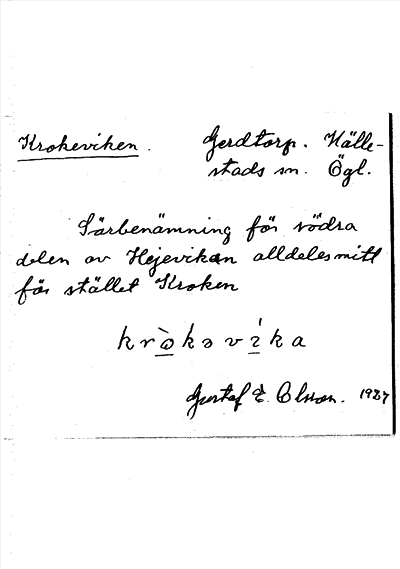 Krokeviken. Gerdtorp. Hälle-
stads sn. Ögl.
Särbenämning för södra
delen av Hejevikan alldeles mitt
för stället Kroken
kròkəvíka
Gustaf E. Olsson. 1927